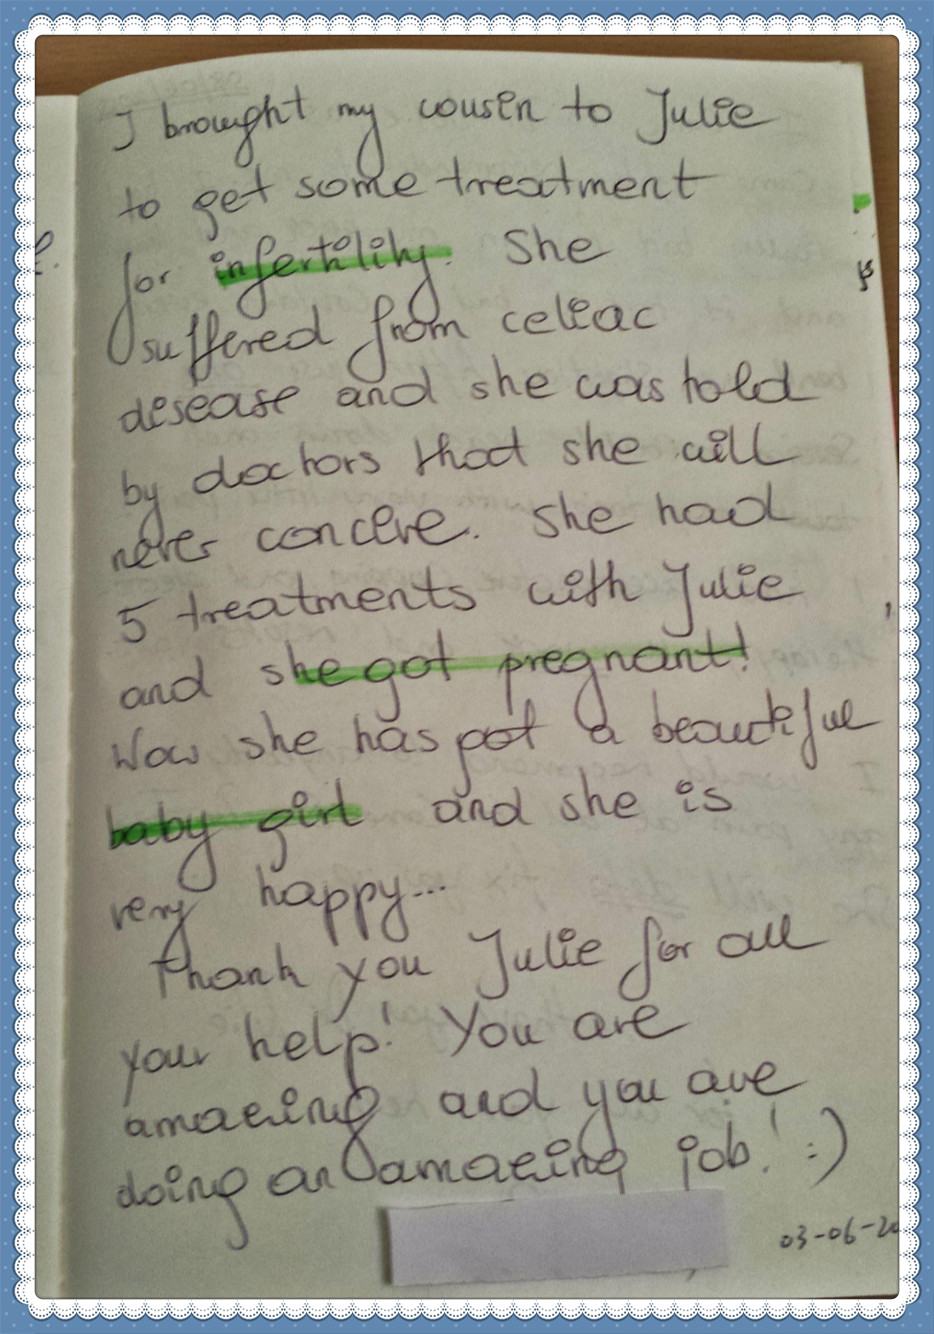 I brought my cousin to Julie
to get some treatment
for infertility. She
suffered from celiac
desease and she was told
by doctors that she will
never conceve. She had
5 treatments with Julie
and she got pregnant!
Now she has got a beautiful
baby girl and she is
very happy...
Thank you Julie for all
your help! You are
amazing and you are
doing an amazing job! :)
03-06-20